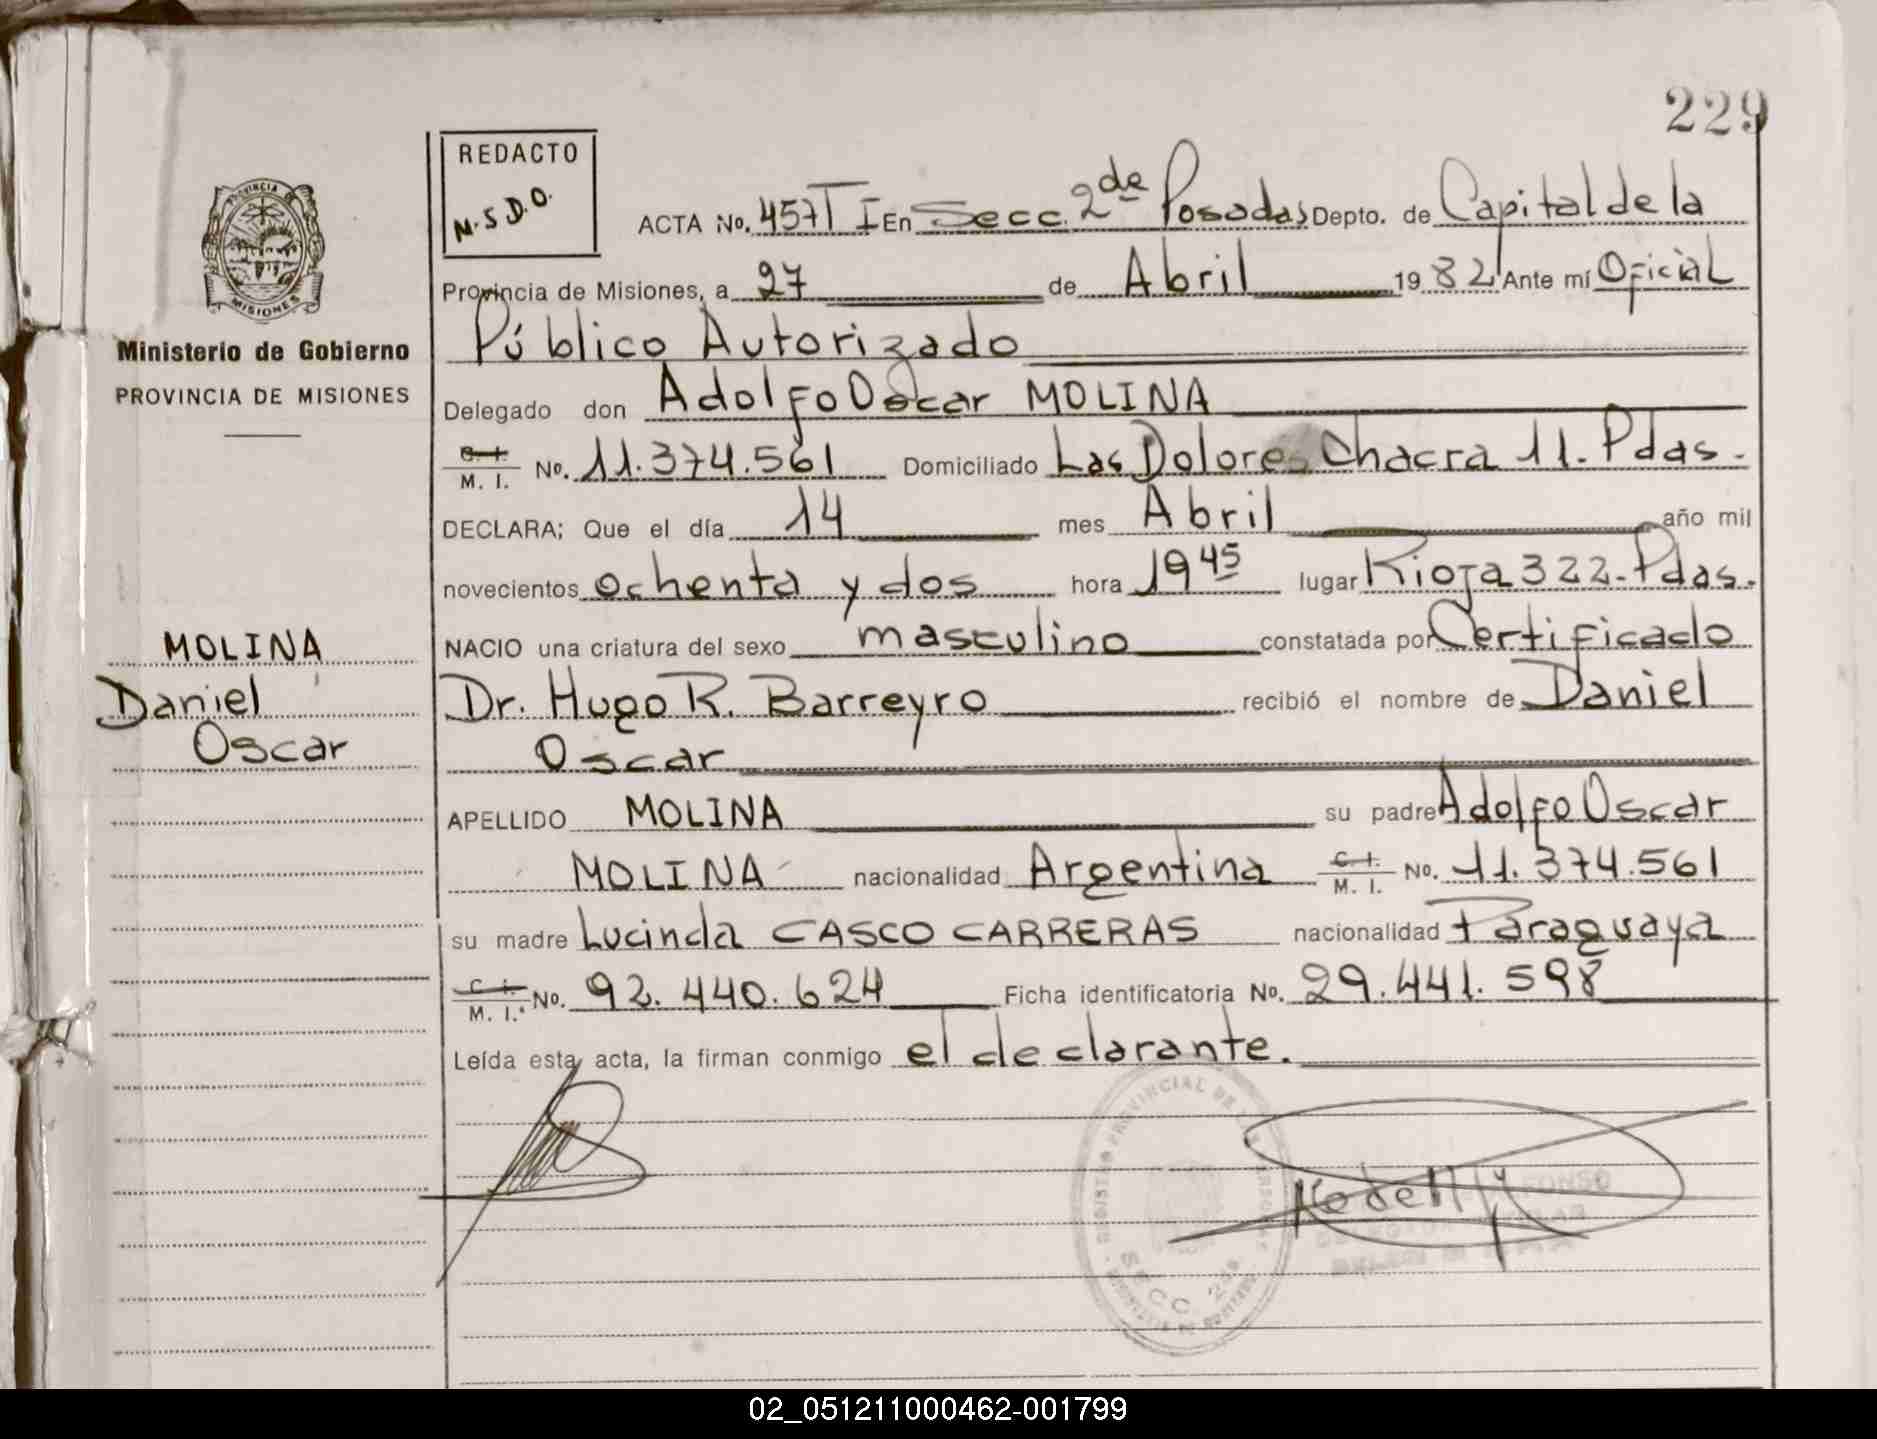 229
REDACTO
M.S.D.O.
ACTA No. 457 T I En Secc. 2da Posadas Depto. de Capital de la
Provincia de Misiones, a 27 de Abril 1982 Ante mí Oficial
Público Autorizado
Delegado don Adolfo Oscar MOLINA
C. I. / M. I. No. 11.374.561 Domiciliado Las Dolores Chacra 11. Pdas.
DECLARA; Que el día 14 mes Abril año mil
novecientos ochenta y dos hora 19 45 lugar Rioja 322-Pdas.
NACIO una criatura del sexo masculino constatada por Certificado
Dr. Hugo R. Barreyro recibió el nombre de Daniel
Oscar
APELLIDO MOLINA su padre Adolfo Oscar
MOLINA nacionalidad Argentina C. I. / M. I. No. 11.374.561
su madre Lucinda CASCO CARRERAS nacionalidad Paraguaya
C. I. / M. I. No. 92.440.624 Ficha identificatoria No. 29.441.598
Leída esta acta, la firman conmigo el declarante.
PROVINCIA
MISIONES
Ministerio de Gobierno
PROVINCIA DE MISIONES
MOLINA
Daniel
Oscar
REGISTRO PROVINCIAL DE LAS PERSONAS
SECC. 2da
02_051211000462-001799